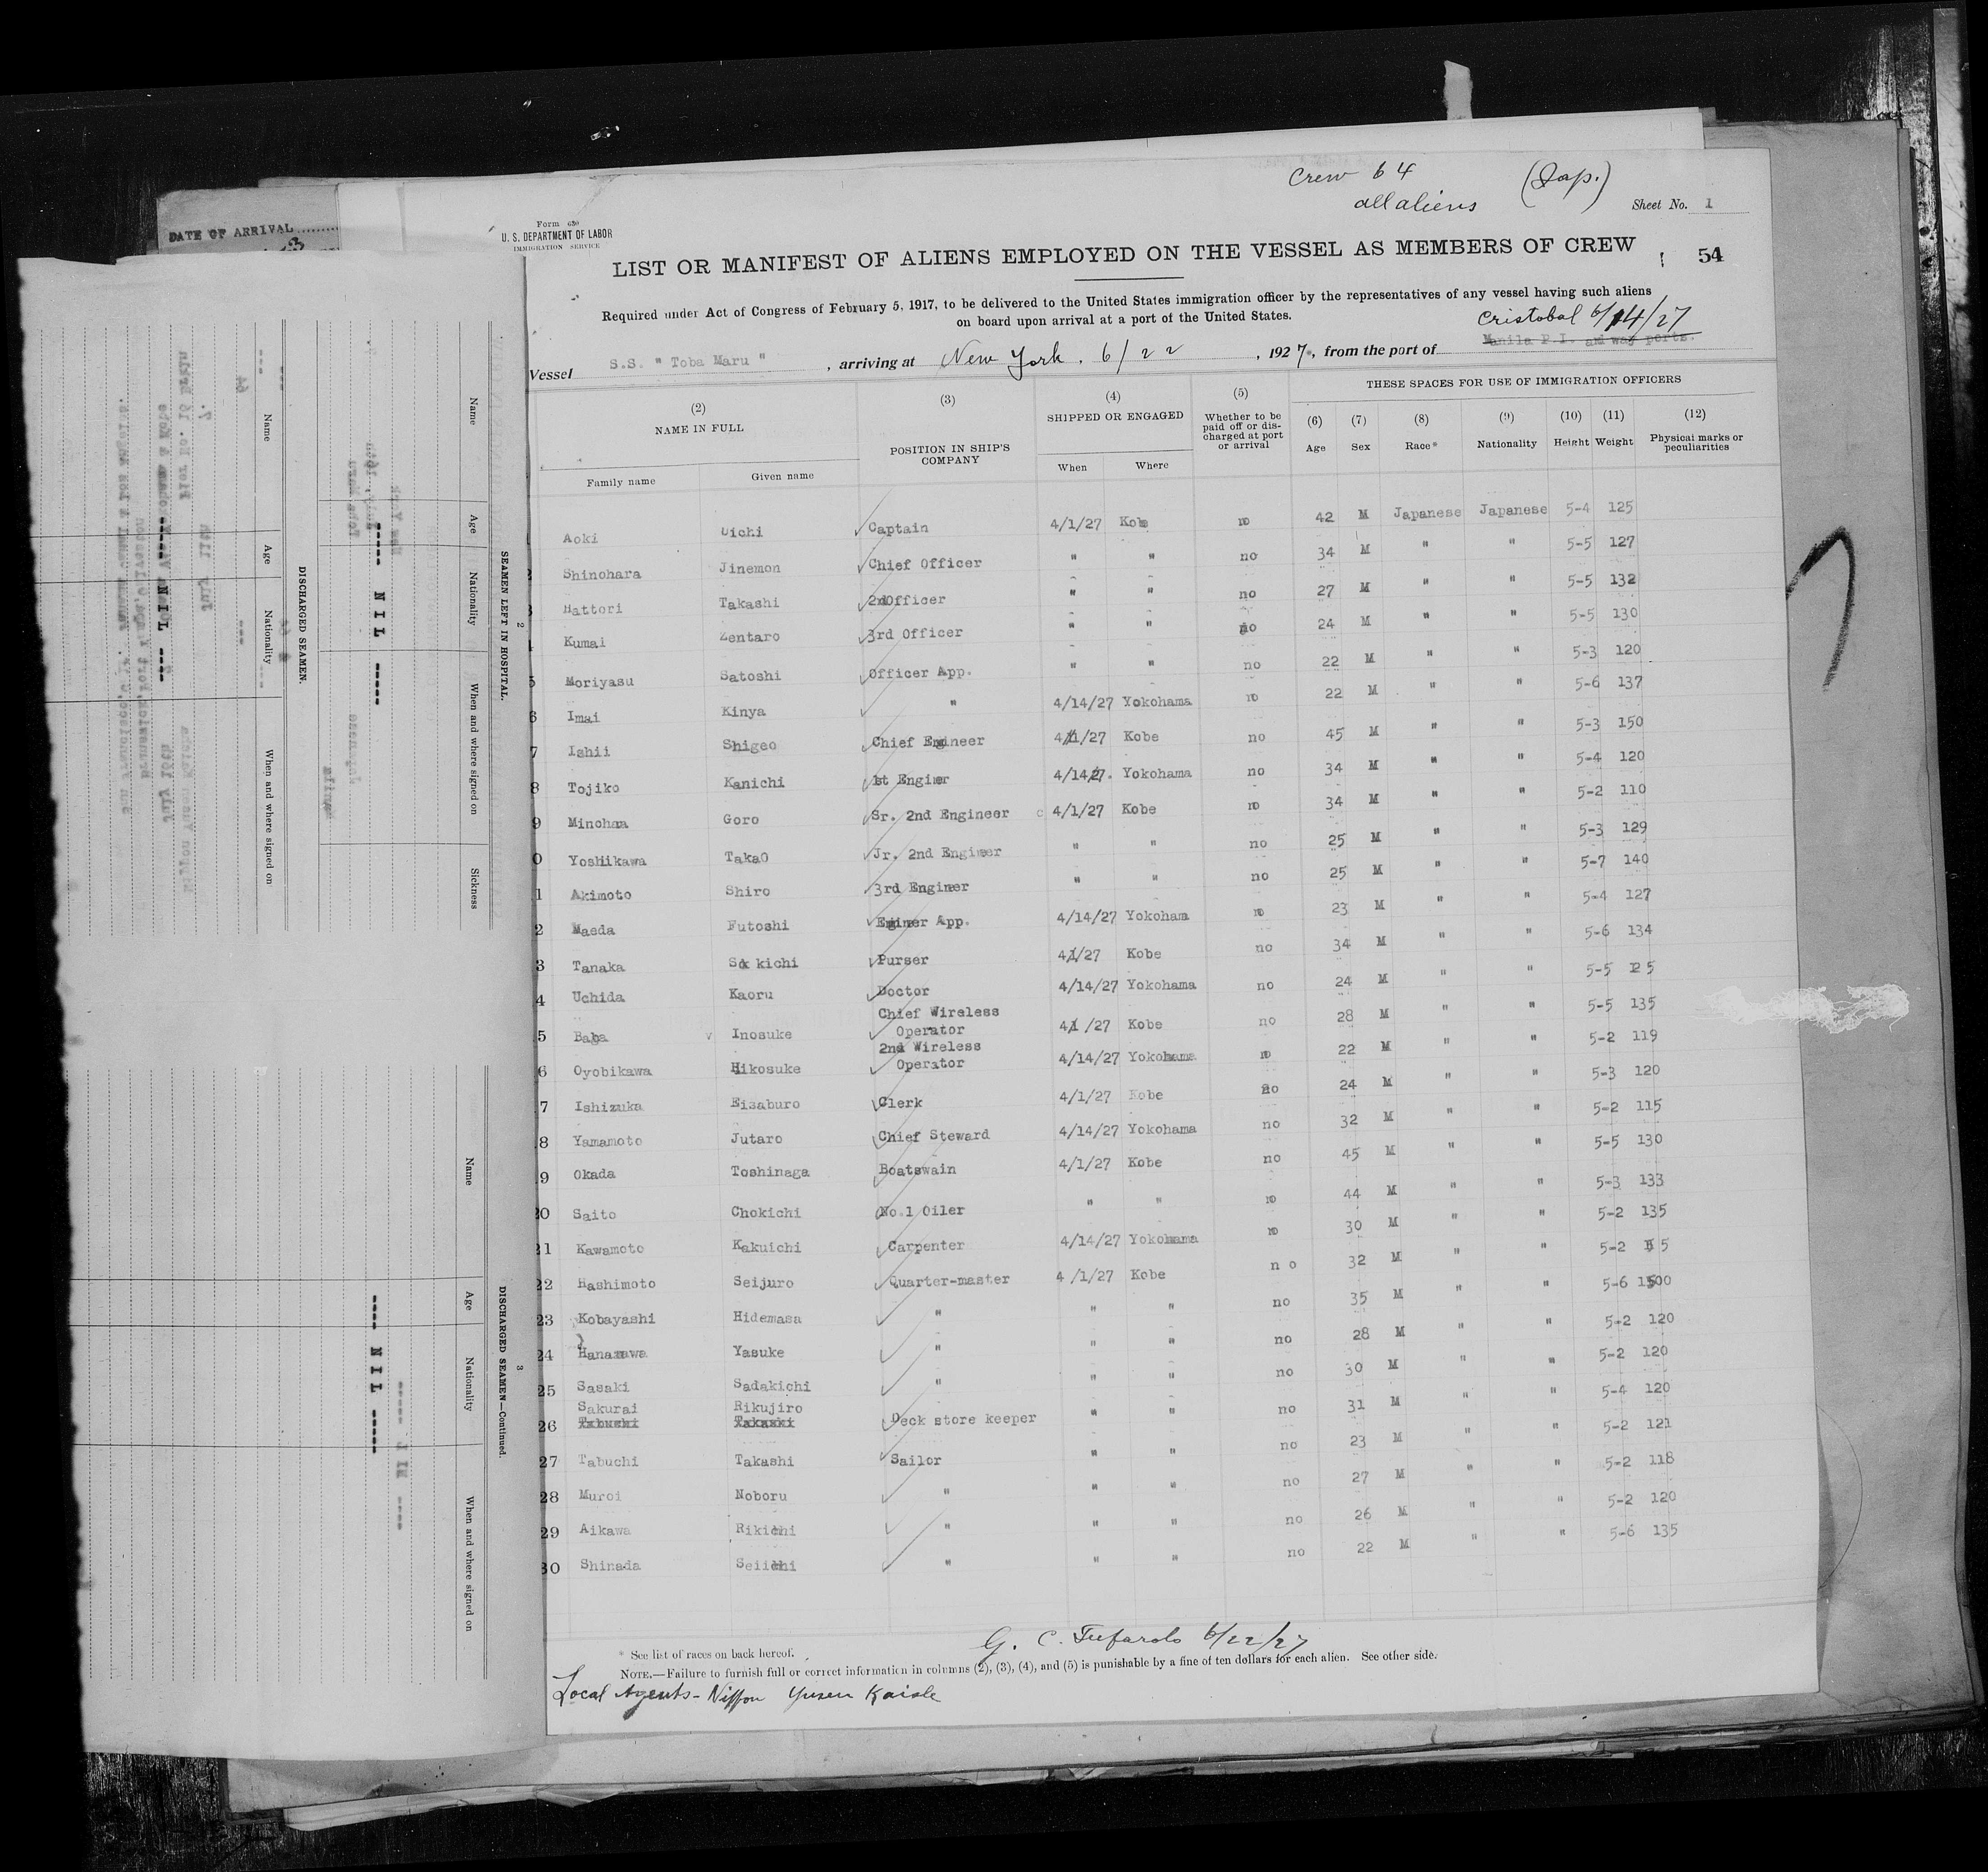 Crew 64 (Jap.)
all aliens
Sheet No. 1
DATE OF ARRIVAL
Form 630
U. S. DEPARTMENT OF LABOR
IMMIGRATION SERVICE
LIST OR MANIFEST OF ALIENS EMPLOYED ON THE VESSEL AS MEMBERS OF CREW
54
Required under Act of Congress of February 5, 1917, to be delivered to the United States immigration officer by the representatives of any vessel having such aliens
on board upon arrival at a port of the United States.
Cristobal 6/14/27
Vessel S.S. " Toba Maru " , arriving at New York. 6/22 , 1927, from the port of Manila P.I. and way ports.
(2) NAME IN FULL
Family name Given name
(3) POSITION IN SHIP'S COMPANY
(4) SHIPPED OR ENGAGED
When Where
(5) Whether to be paid off or discharged at port or arrival
THESE SPACES FOR USE OF IMMIGRATION OFFICERS
(6) Age (7) Sex (8) Race* (9) Nationality (10) Height (11) Weight (12) Physical marks or peculiarities
Aoki Uichi Captain 4/1/27 Kobe no 42 M Japanese Japanese 5-4 125
2 Shinohara Jinemon Chief Officer " " no 34 M " " 5-5 127
3 Hattori Takashi 2nd Officer " " no 27 M " " 5-5 132
Kumai Zentaro 3rd Officer " " no 24 M " " 5-5 130
5 Moriyasu Satoshi Officer App. " " no 22 M " " 5-3 120
6 Imai Kinya " 4/14/27 Yokohama no 22 M " " 5-6 137
7 Ishii Shigeo Chief Engineer 4/1/27 Kobe no 45 M " " 5-3 150
8 Tojiko Kanichi 1st Engineer 4/14/27. Yokohama no 34 M " " 5-4 120
9 Minohara Goro Sr. 2nd Engineer 4/1/27 Kobe no 34 M " " 5-2 110
0 Yoshikawa Takao Jr. 2nd Engineer " " no 25 M " " 5-3 129
1 Akimoto Shiro 3rd Engineer " " no 25 M " " 5-7 140
2 Maeda Futoshi Engineer App. 4/14/27 Yokohama no 23 M " " 5-4 127
3 Tanaka So kichi Purser 4/1/27 Kobe no 34 M " " 5-6 134
4 Uchida Kaoru Doctor 4/14/27 Yokohama no 24 M " " 5-5 125
5 Baba Inosuke Chief Wireless Operator 4/1/27 Kobe no 28 M " " 5-5 135
6 Oyobikawa Hikosuke 2nd Wireless Operator 4/14/27 Yokohama no 22 M " " 5-2 119
7 Ishizuka Eizaburo Clerk 4/1/27 Kobe no 24 M " " 5-3 120
8 Yamamoto Jutaro Chief Steward 4/14/27 Yokohama no 32 M " " 5-2 115
9 Okada Toshinaga Boatswain 4/1/27 Kobe no 45 M " " 5-5 130
20 Saito Chokichi No.1 Oiler " " no 44 M " " 5-3 133
21 Kawamoto Kakuichi Carpenter 4/14/27 Yokohama no 30 M " " 5-2 135
22 Hashimoto Seijuro Quarter-master 4/1/27 Kobe no 32 M " " 5-2
23 Kobayashi Hidemasa " " " no 35 M " " 5-6
24 Hanazawa Yasuke " " " no 28 M " " 5-2 120
25 Sasaki Sadakichi " " " no 30 M " " 5-2 120
Sakurai Rikujiro
26 Tabuchi Takashi Deck store keeper " " no 31 M " " 5-4 120
27 Tabuchi Takashi Sailor " " no 23 M " " 5-2 121
28 Muroi Noboru " " " no 27 M " " 5-2 118
29 Aikawa Rikichi " " " no 26 M " " 5-2 120
30 Shinada Seiichi " " " no 22 M " " 5-6 135
G. C. Tufarolo 6/22/27
* See list of races on back hereof.
NOTE.—Failure to furnish full or correct information in columns (2), (3), (4), and (5) is punishable by a fine of ten dollars for each alien. See other side.
Local Agents - Nippon Yusen Kaisha
2
SEAMEN LEFT IN HOSPITAL.
Name Age Nationality When and where signed on Sickness
----- NIL -----
DISCHARGED SEAMEN.
Name Age Nationality When and where signed on
3
DISCHARGED SEAMEN—Continued.
Name Age Nationality When and where signed on
---- NIL -----